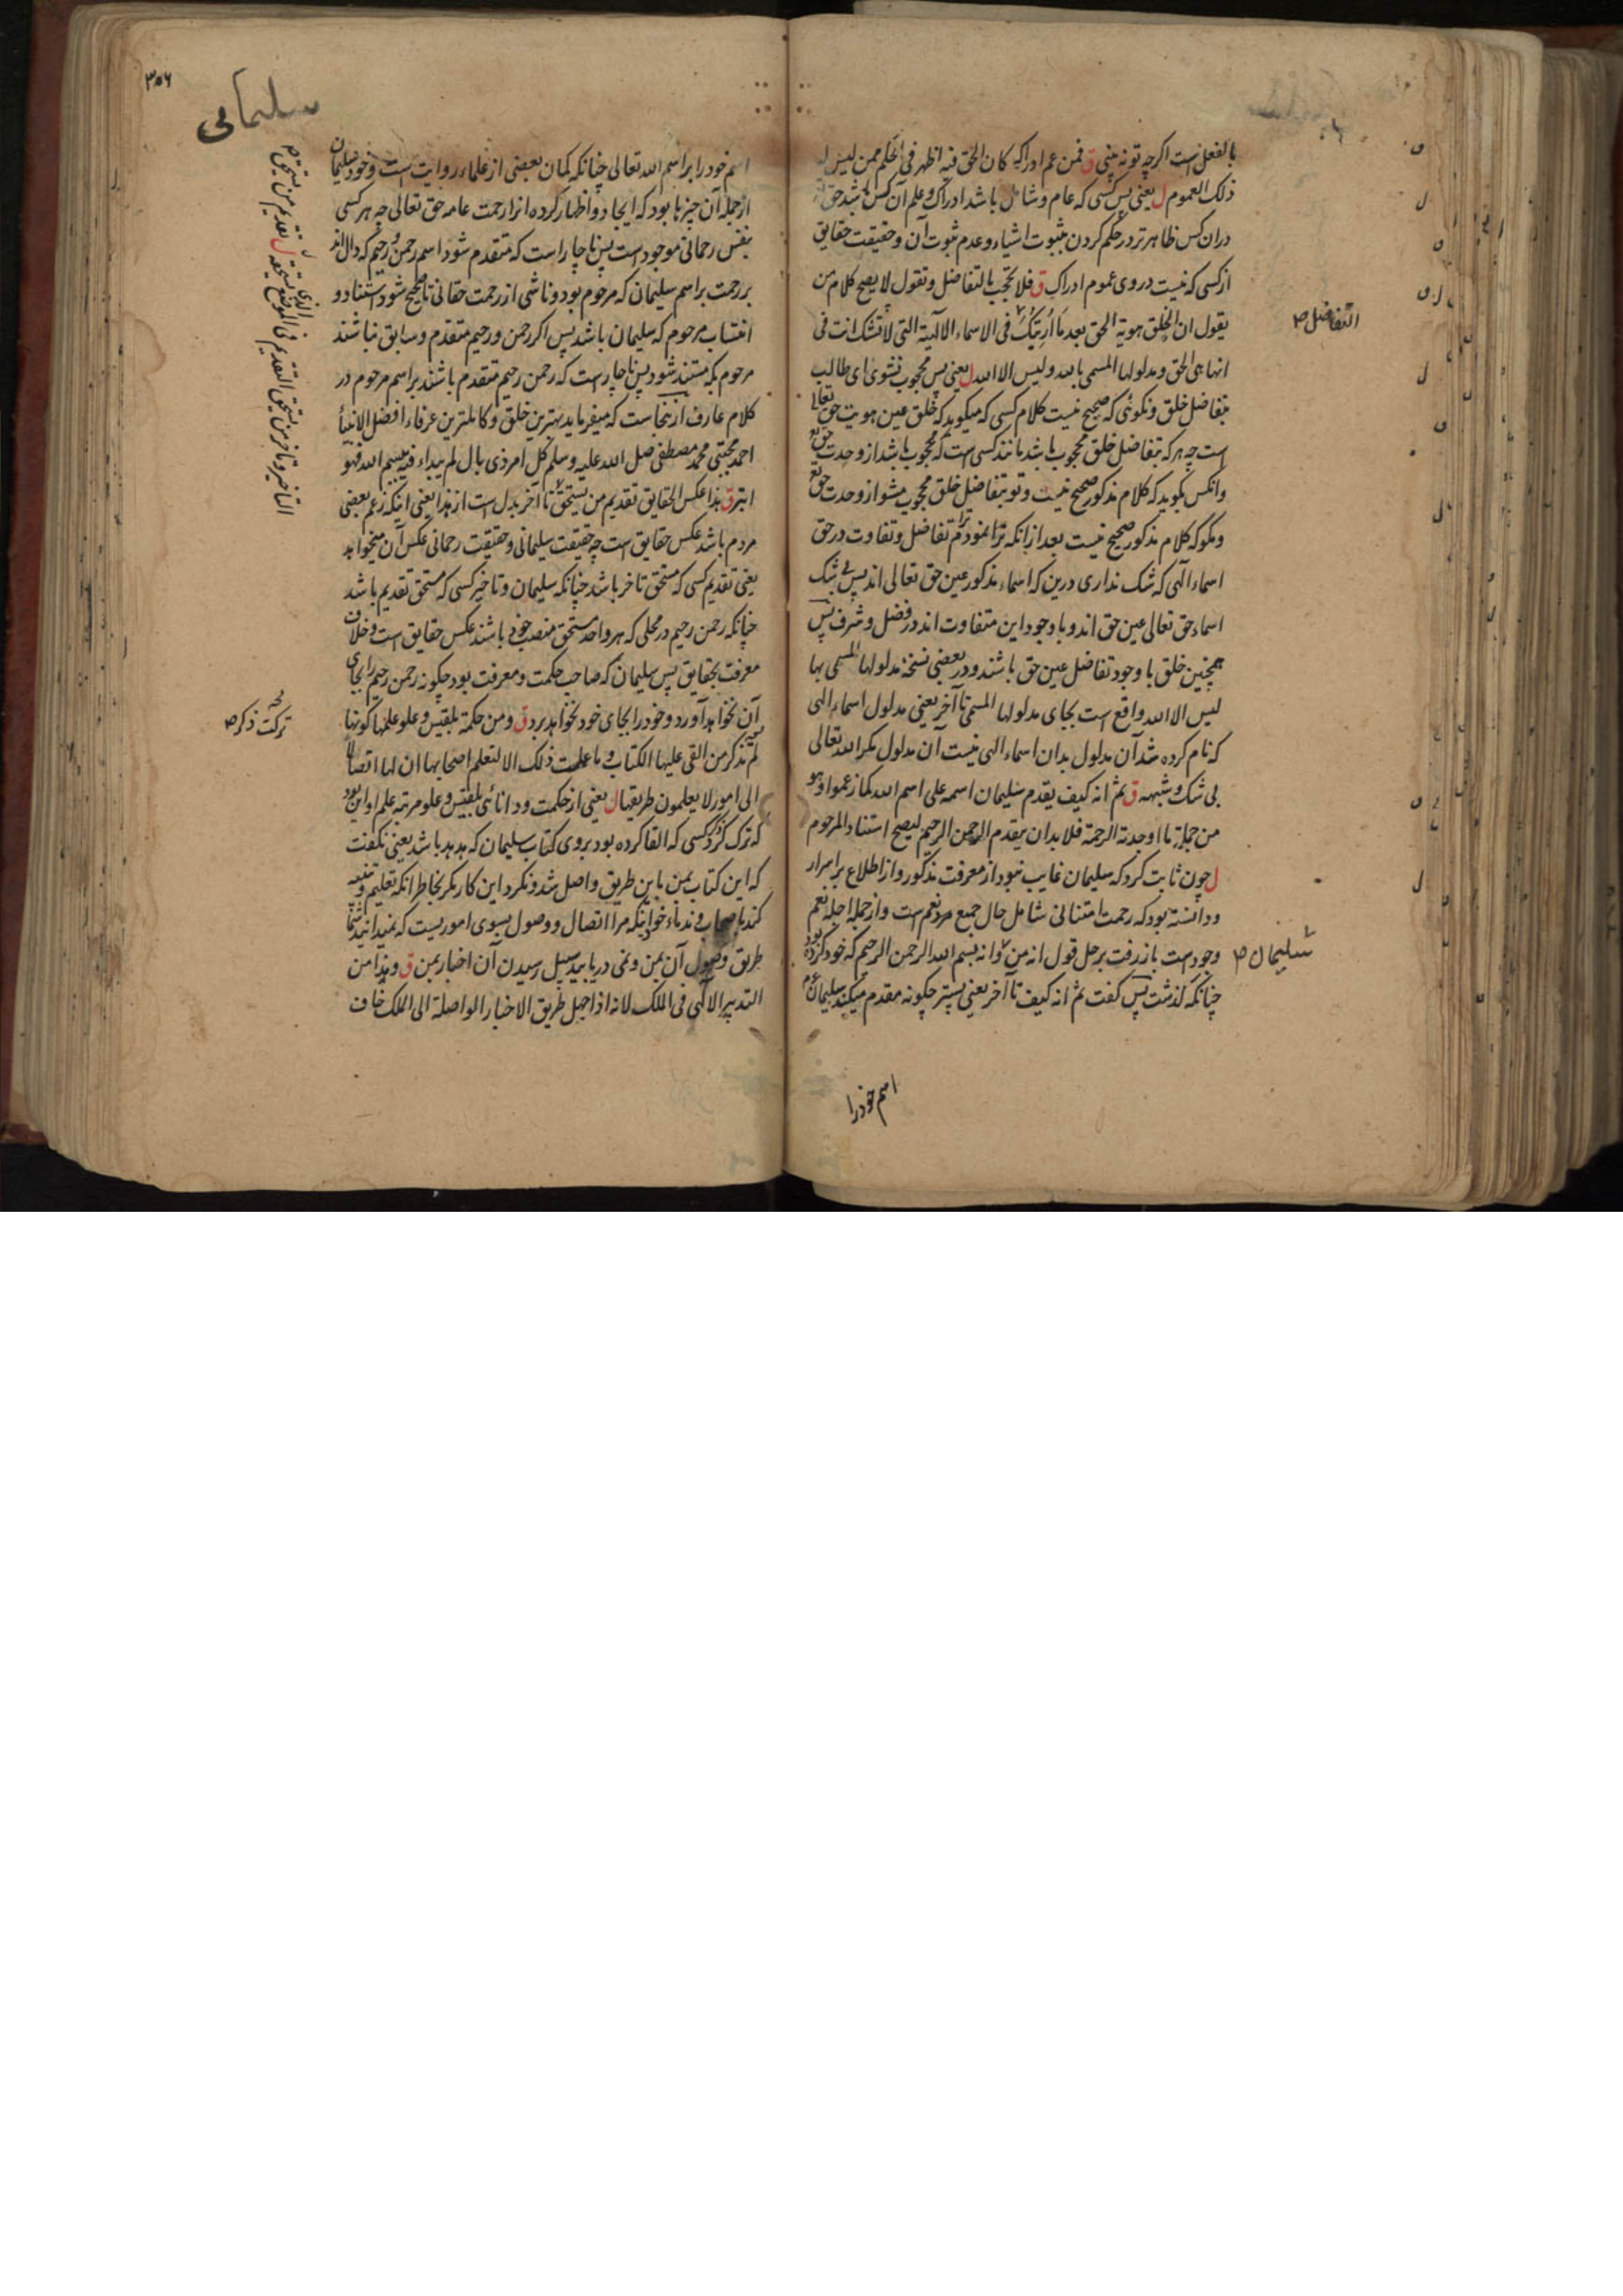 بالفعل است اکرچه تو نه بینی ق فمن عم ادراکه کان الحق فیه اظهر فی الحکم ممن لیس له
ذلک العموم ل یعنی پس کسی که عام و شامل باشد ادراک و علم آن کس باشد حق
دران کس ظاهرتر در حکم کردن بثبوت اشیاء و عدم ثبوت آن و حقیقت حقایق
از کسی که نیست در وی عموم ادراک ق فلا تحجب بالتفاضل و تقول لا یصح کلام من
یقول ان الخلق هویة الحق بعد ما اریتک فی الاسماء الالهیة التی لا تشک انت فی
انها هی الحق و مدلولها المسمی بها و لیس الا الله ل یعنی پس محجوب نشوی ای طالب
بتفاضل خلق و نکوئی که صحیح نیست کلام کسی که میکوید که خلق عین هویت حق تعالی
است چه هر که بتفاضل خلق محجوب باشد مانند کسی است که محجوب باشد از وحدت حق
وانکس بکوید که کلام مذکور صحیح نیست و تو بتفاضل خلق محجوب مشو از وحدت حق
و مکو که کلام مذکور صحیح نیست بعد ازانکه ترا نمودم تفاضل و تفاوت در حق
اسماء الهی که شک نداری درین که اسماء مذکور عین حق تعالی اند پس بی شک
اسماء حق تعالی عین حق اند و با وجود این متفاوت اند در فضل و شرف پس
همچنین خلق با وجود تفاضل عین حق باشند و در بعضی نسخه مدلولها المسمی بها
لیس الا الله واقع است بجای مدلولها المسمی تا آخر یعنی مدلول اسماء الهی
که نام کرده شد آن مدلول بدان اسماء الهی نیست آن مدلول مکر الله تعالی
بی شک و شبهه ق ثم انه کیف یقدم سلیمان اسمه علی اسم الله کما زعموا و هو
من جملة ما اوجدته الرحمة فلا بد ان یتقدم الرحمن الرحیم لیصح استناد المرحوم
ل چون ثابت کرد که سلیمان غایب نبود از معرفت مذکور و از اطلاع بر اسرار
و دانسته بود که رحمت امتنانی شامل حال جمیع مردم است و از جمله اجله نعم
وجود است باز رفت بر حل قول انه من و انه بسم الله الرحمن الرحیم که خود کرده بود
چنانکه کذشت پس کفت ثم انه کیف تا آخر یعنی پستر چکونه مقدم میکند سلیمان
التفاضل ص
سلیمان ص
اسم خود را
۳۵۶
سلیمانی
اسم خود را بر اسم الله تعالی چنانکه کمان بعضی از علماء روایت است و خود سلیمان
ازجمله آن چیزها بود که ایجاد و اظهار کرده انرا رحمت عامه حق تعالی چه هر کسی
بنفس رحمانی موجود است پس ناچار است که متقدم شود اسم رحمن و رحیم که دال اند
بر رحمت بر اسم سلیمان که مرحوم بود و ناشی از رحمت حقانی تا صحیح شود استناد و
انتساب مرحوم که سلیمان باشد پس اکر رحمن و رحیم متقدم و سابق نباشند
مرحوم بکه مستند شود پس ناچار است که رحمن رحیم متقدم باشند بر اسم مرحوم در
کلام عارف ازینجاست که میفرماید بهترین خلق و کاملترین عرفاء افضل الانبیا
احمد مجتبی محمد مصطفی صلی الله علیه و سلم کل امر ذی بال لم یبداء فیه ببسم الله فهو
ابتر ق هذا عکس الحقایق تقدیم من یستحق تا آخر بدل است از هذا یعنی انکه زعم بعضی
مردم باشد عکس حقایق است چه حقیقت سلیمانی و حقیقت رحمانی عکس آن میخواهد
یعنی تقدیم کسی که مستحق تاخر باشد چنانکه سلیمان و تاخیر کسی که مستحق تقدیم باشد
چنانکه رحمن رحیم در محلی که هر واحد مستحق منصب خود باشند عکس حقایق است و خلاف
معرفت بحقایق پس سلیمان که صاحب حکمت و معرفت بود چکونه رحمن رحیم را بجای
آن نخواهد آورد و خود را بجای خود نخواهد برد ق و من حکمة بلقیس و علو علمها کونها
لم تذکر من القی علیها الکتاب و ما عملت ذلک الا لتعلم اصحابها ان لها اتصالا
الی امور لا یعلمون طریقها ل یعنی از حکمت و دانائی بلقیس و علو مرتبه علم او این بود
که ترک کرد کسی که القا کرده بود بروی کتاب سلیمان که هدهد باشد یعنی نکفت
که این کتاب بمن باین طریق واصل شد و نکرد این کار مکر بخاطر انکه تعلیم و تنبیه
کند باصحاب و ندماء خود اینکه مرا اتصال و وصول بسوی امور یست که نمیدانید شما
طریق وصول آن بمن و نمی دریابید سبیل رسیدن آن اخبار بمن ق و هذا من
التدبیر الالهی فی الملک لانه اذا جهل طریق الاخبار الواصلة الی الملک خاف
التاخیر و تاخر من یستحق التقدیم فی الموضع الذی یستحقه ل تقدیم من یستحق ص
ترکت ذکر ص